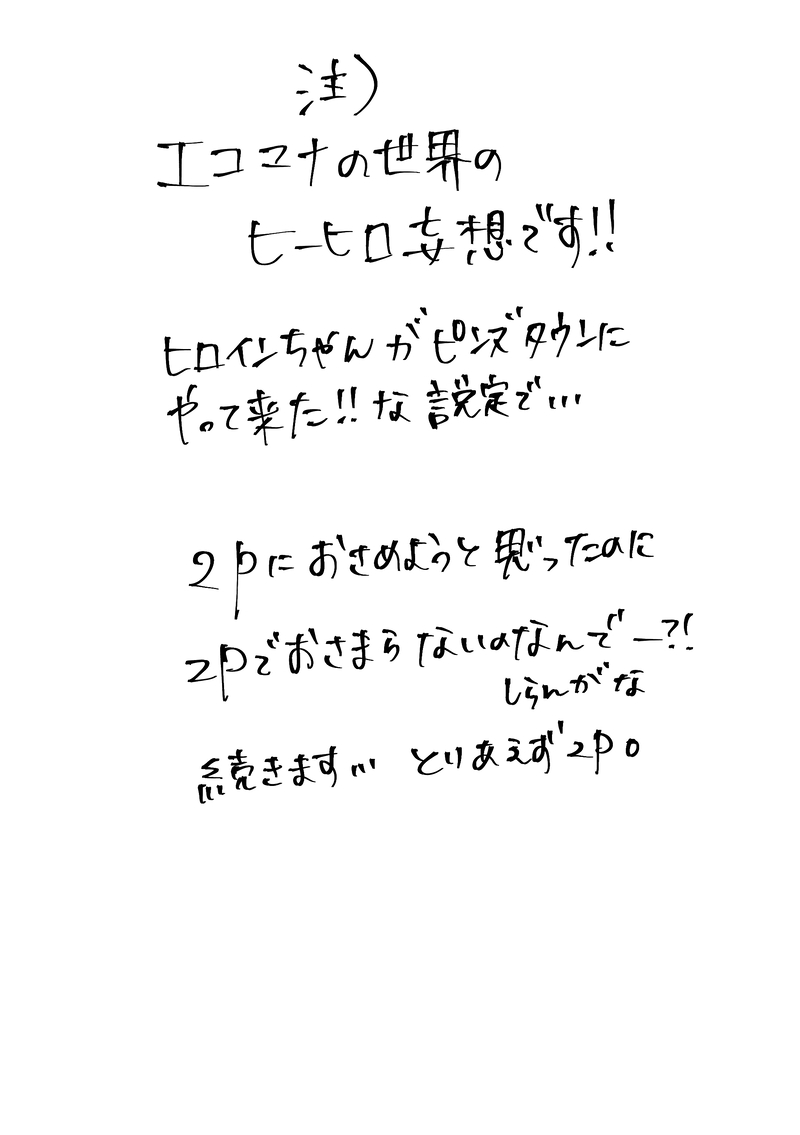 注)
エコマナの世界の
ヒーヒロ妄想です!!
ヒロインちゃんがピンズタウンに
やって来た!!な設定で…
2pにおさめようと思ったのに
2pでおさまらないのなんでー?!
しらんがな
続きます… とりあえず2p。